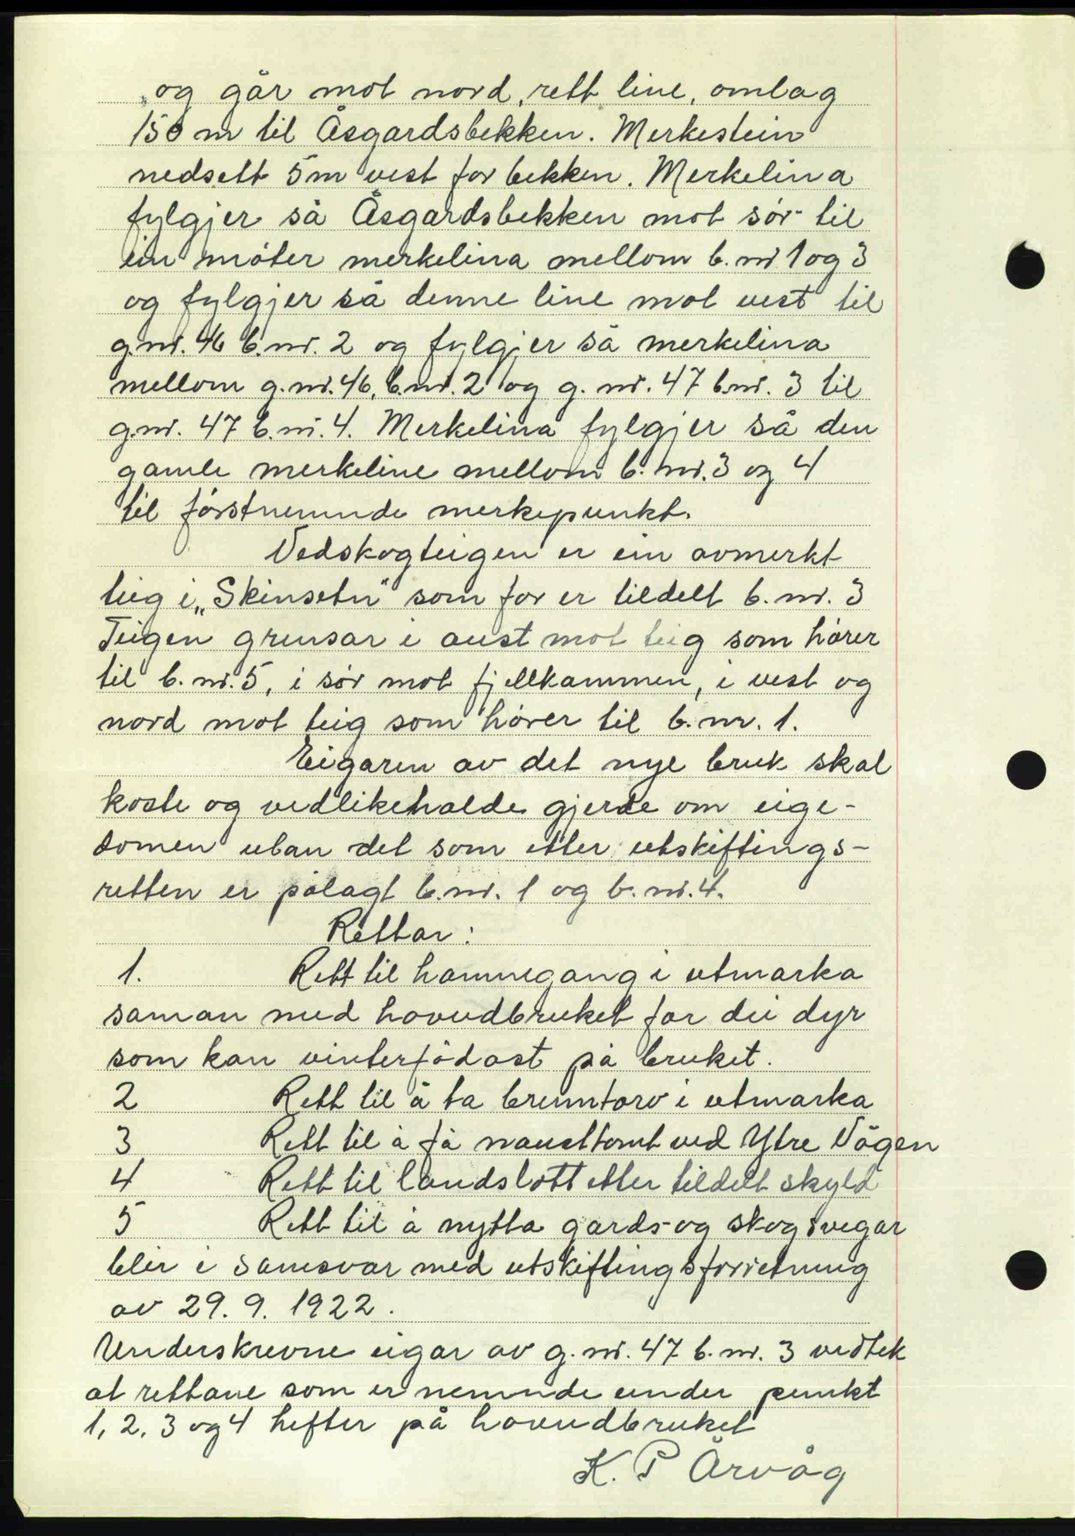 og går mot nord, rett line, omlag
150 m til Åsgardsbekken. Merkestein
nedsett 5m vest for bekken. Merkelina
fylgjer så Åsgardsbekken mot sør til
ein møter merkelina mellom b.nr 1 og 3
og fylgjer så denne line mot vest til
g.nr. 46 b.nr. 2 og fylgjer så merkelina
mellom g.nr. 46, b.nr. 2 og g. nr. 47 b.nr. 3 til
g.nr. 47 b.nr. 4. Merkelina fylgjer så den
gamle merkeline mellom b. nr. 3 og 4
til førstnemnde merkepunkt.
Vedskogteigen er ein avmerkt
teig i „Skinsetn" som før er tildelt b. nr. 3
Teigen grensar i aust mot teig som hører
til b. nr. 5, i sør mot fjellkammen, i vest og
nord mot teig som hører til b. nr. 1.
Eigaren av det nye bruk skal
koste og vedlikehalde gjerde om eige-
domen utan det som etter utskiftings-
retten er pålagt b.nr. 1 og b. nr. 4.
Rettar:
1. Rett til hamnegang i utmarka
saman med hovudbruket for dei dyr
som kan vinterfødast på bruket.
2 Rett til å ta brenntorv i utmarka
3 Rett til å få nausttomt ved Ytre Vågen
4 Rett til landslott etter tildelt skyld
5 Rett til å nytta gards- og skogsvegar
blir i samsvar med utskiftingsforretning
av 29. 9. 1922.
Underskrevne eigar av g. nr. 47 b. nr. 3 vedtek
at rettane som er nemnde under punkt
1, 2, 3 og 4 hefter på hovudbruket
K. P Årvåg